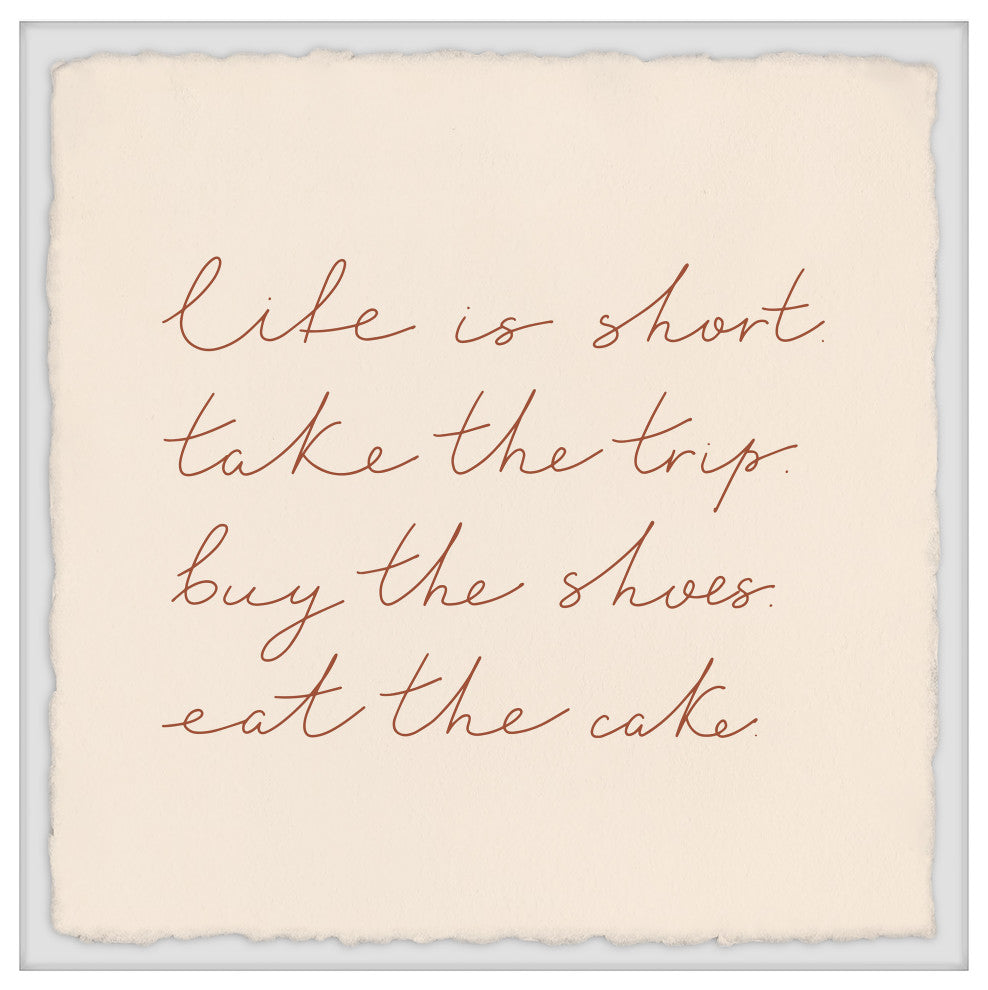 life is short.
take the trip.
buy the shoes.
eat the cake.